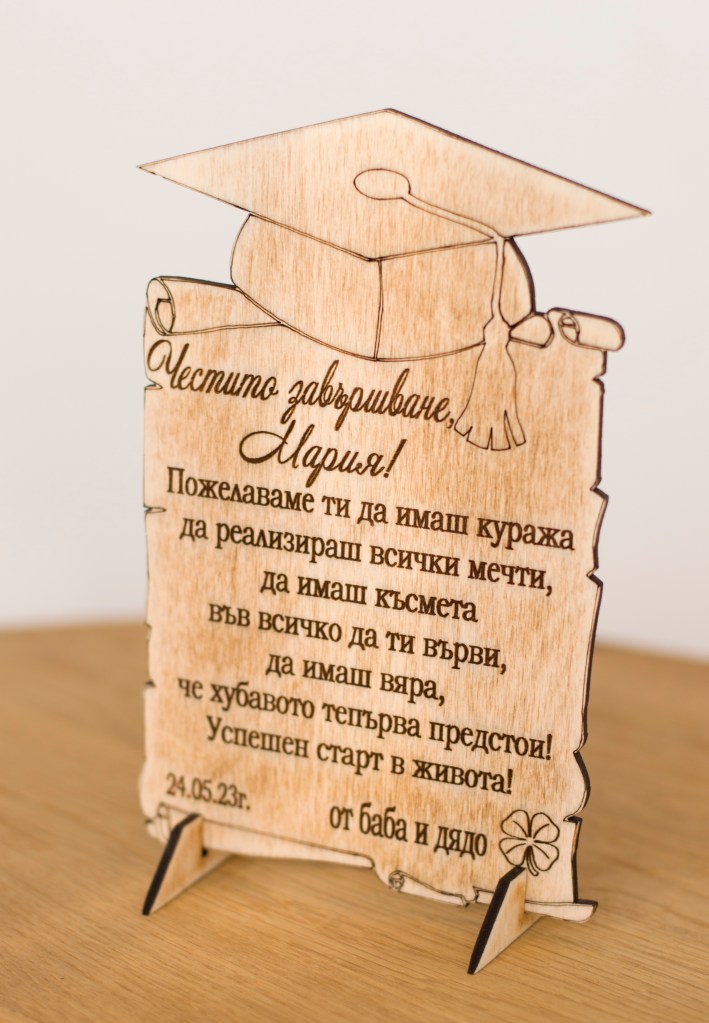 Честито завършване,
Мария!
Пожелаваме ти да имаш куража
да реализираш всички мечти,
да имаш късмета
във всичко да ти върви,
да имаш вяра,
че хубавото тепърва предстои!
Успешен старт в живота!
24.05.23г.
от баба и дядо